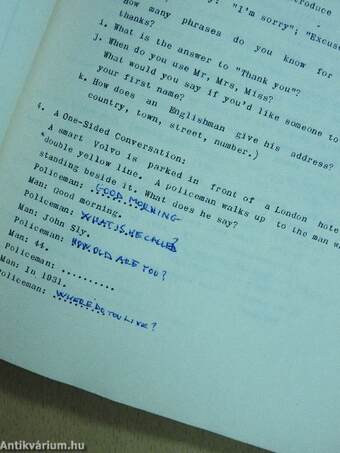 roduce
y: "I'm sorry"; "Excuse
How many phrases do you know for
thanks?
i. What is the answer to "Thank you"?
j. When do you use Mr, Mrs, Miss?
What would you say if you'd like someone to
your first name?
k. How does an Englishman give his address?
country, town, street, number.)
4. A One-Sided Conversation:
A smart Volvo is parked in front of a London hote
double yellow line. A policeman walks up to the man w
standing beside it. What does he say?
Policeman: GOOD MORNING
Man: Good morning.
Policeman: WHAT IS HE CALLED?
Man: John Sly.
Policeman: HOW OLD ARE YOU?
Man: 44.
Policeman: ..........
Man: In 1931.
Policeman: WHERE DO YOU LIVE?
Antikvárium.hu